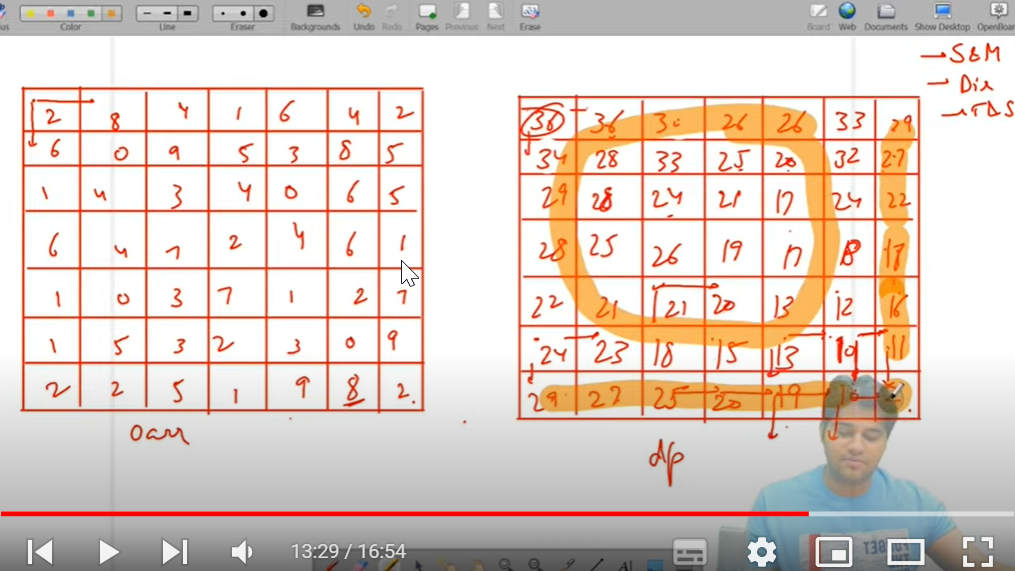 Color Line Eraser Backgrounds Undo Redo Pages Previous Next Erase Board Web Documents Show Desktop OpenBoar
→ S&M
→ Dir
→ T&S
2 8 4 1 6 4 2
6 0 9 5 3 8 5
1 4 3 4 0 6 5
6 4 7 2 4 6 1
1 0 3 7 1 2 7
1 5 3 2 3 0 9
2 2 5 1 9 8 2
36 36 30 26 26 33 29
34 28 33 25 20 32 27
29 28 24 21 17 24 22
28 25 26 19 17 18 17
22 21 21 20 13 12 16
24 23 18 15 13 10 11
29 27 25 20 19 10 2
oarr
dp
13:29 / 16:54